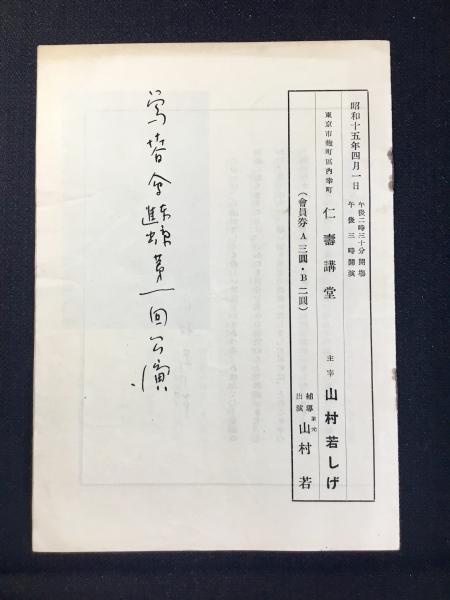 昭和十五年四月一日
午後二時三十分開場
午後三時開演
東京市麹町區内幸町
仁壽講堂
(會員券 A三圓・B二圓)
主宰 山村若しげ
補導 家元
出演
山村若
會東京進出第一回公演